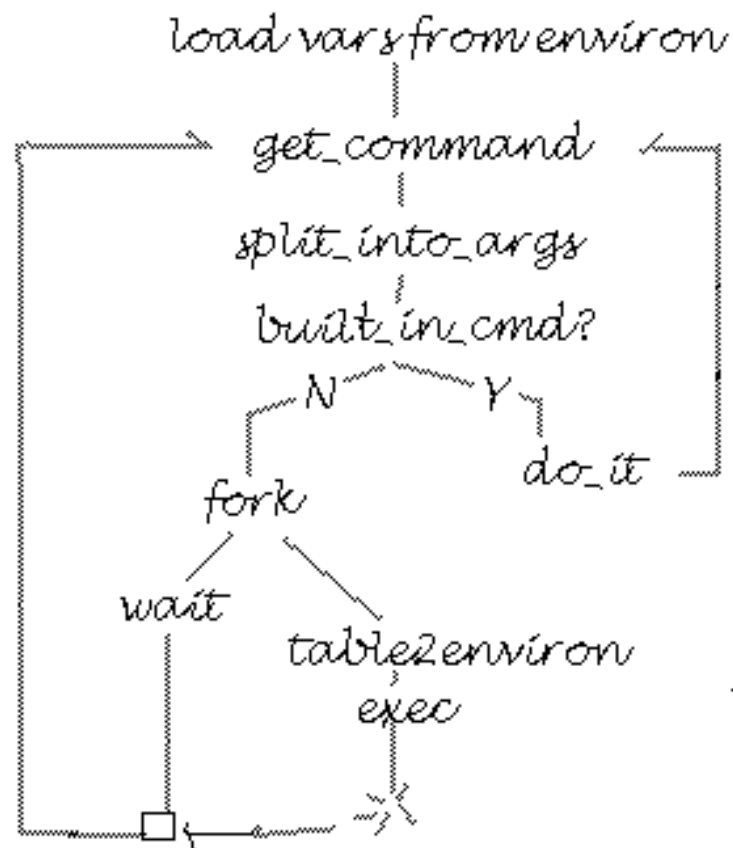 load vars from environ
get_command
split_into_args
built_in_cmd?
N Y
do_it
fork
wait
table2environ
exec